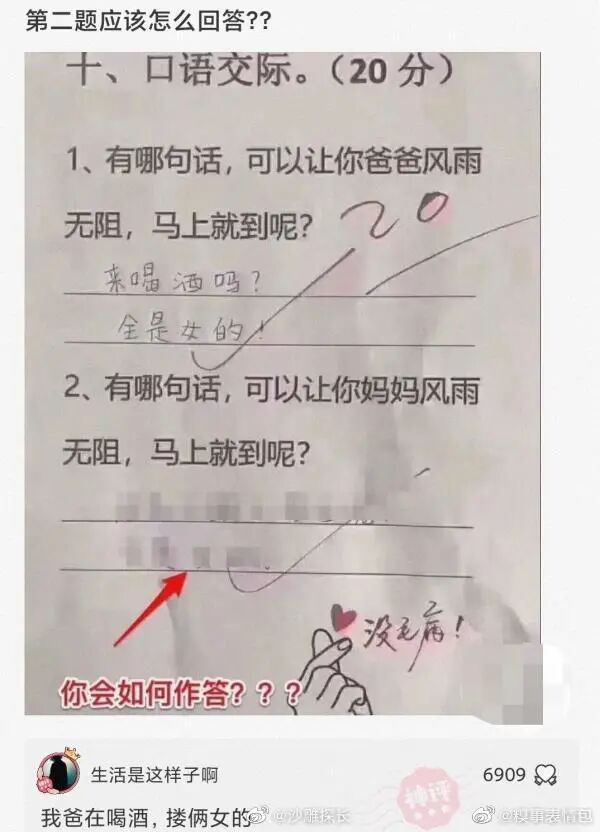 第二题应该怎么回答??
十、口语交际。（20 分）
1、有哪句话，可以让你爸爸风雨
无阻，马上就到呢？
20
来喝酒吗？
全是女的！
2、有哪句话，可以让你妈妈风雨
无阻，马上就到呢？
没毛病！
你会如何作答？？？
生活是这样子啊
6909
神评
我爸在喝酒，搂俩女的
@沙雕探长
@糗事表情包